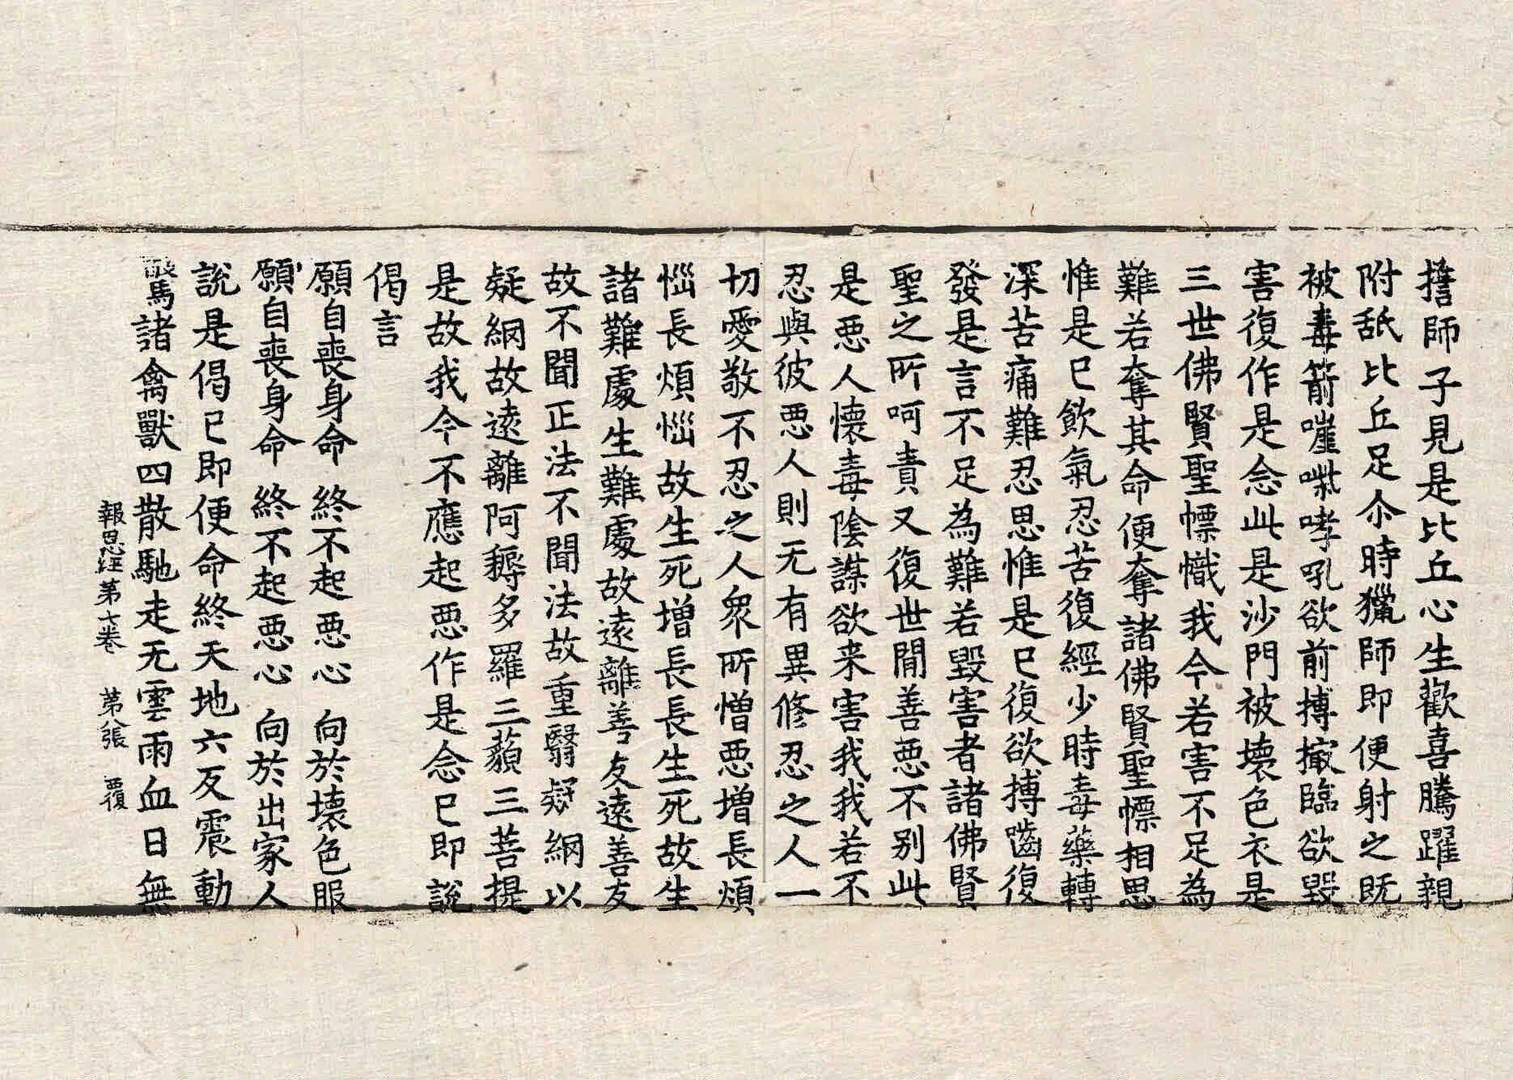 擔師子見是比丘心生歡喜騰躍親
附舐比丘足尒時獵師即便射之旣
被毒箭嘊喍哮吼欲前搏撮臨欲毀
害復作是念此是沙門被壊色衣是
三世佛賢聖幖幟我今若害不足為
難若奪其命便奪諸佛賢聖幖相思
惟是已飲氣忍苦復經少時毒藥轉
深苦痛難忍思惟是已復欲搏齧復
發是言不足為難若毀害者諸佛賢
聖之所呵責又復世間善惡不別此
是惡人懷毒陰謀欲来害我我若不
忍與彼惡人則无有異修忍之人一
切愛敬不忍之人衆所憎惡增長煩
惱長煩惱故生死增長長生死故生
諸難處生難處故遠離善友遠善友
故不聞正法不聞法故重翳疑網以
疑網故遠離阿耨多羅三藐三菩提
是故我今不應起惡作是念已即說
偈言
願自喪身命 終不起惡心 向於壊色服
願自喪身命 終不起惡心 向於出家人
說是偈已即便命終天地六反震動
驚馬諸禽獸四散馳走无雲雨血日無
報恩経第七卷 第八張 覆